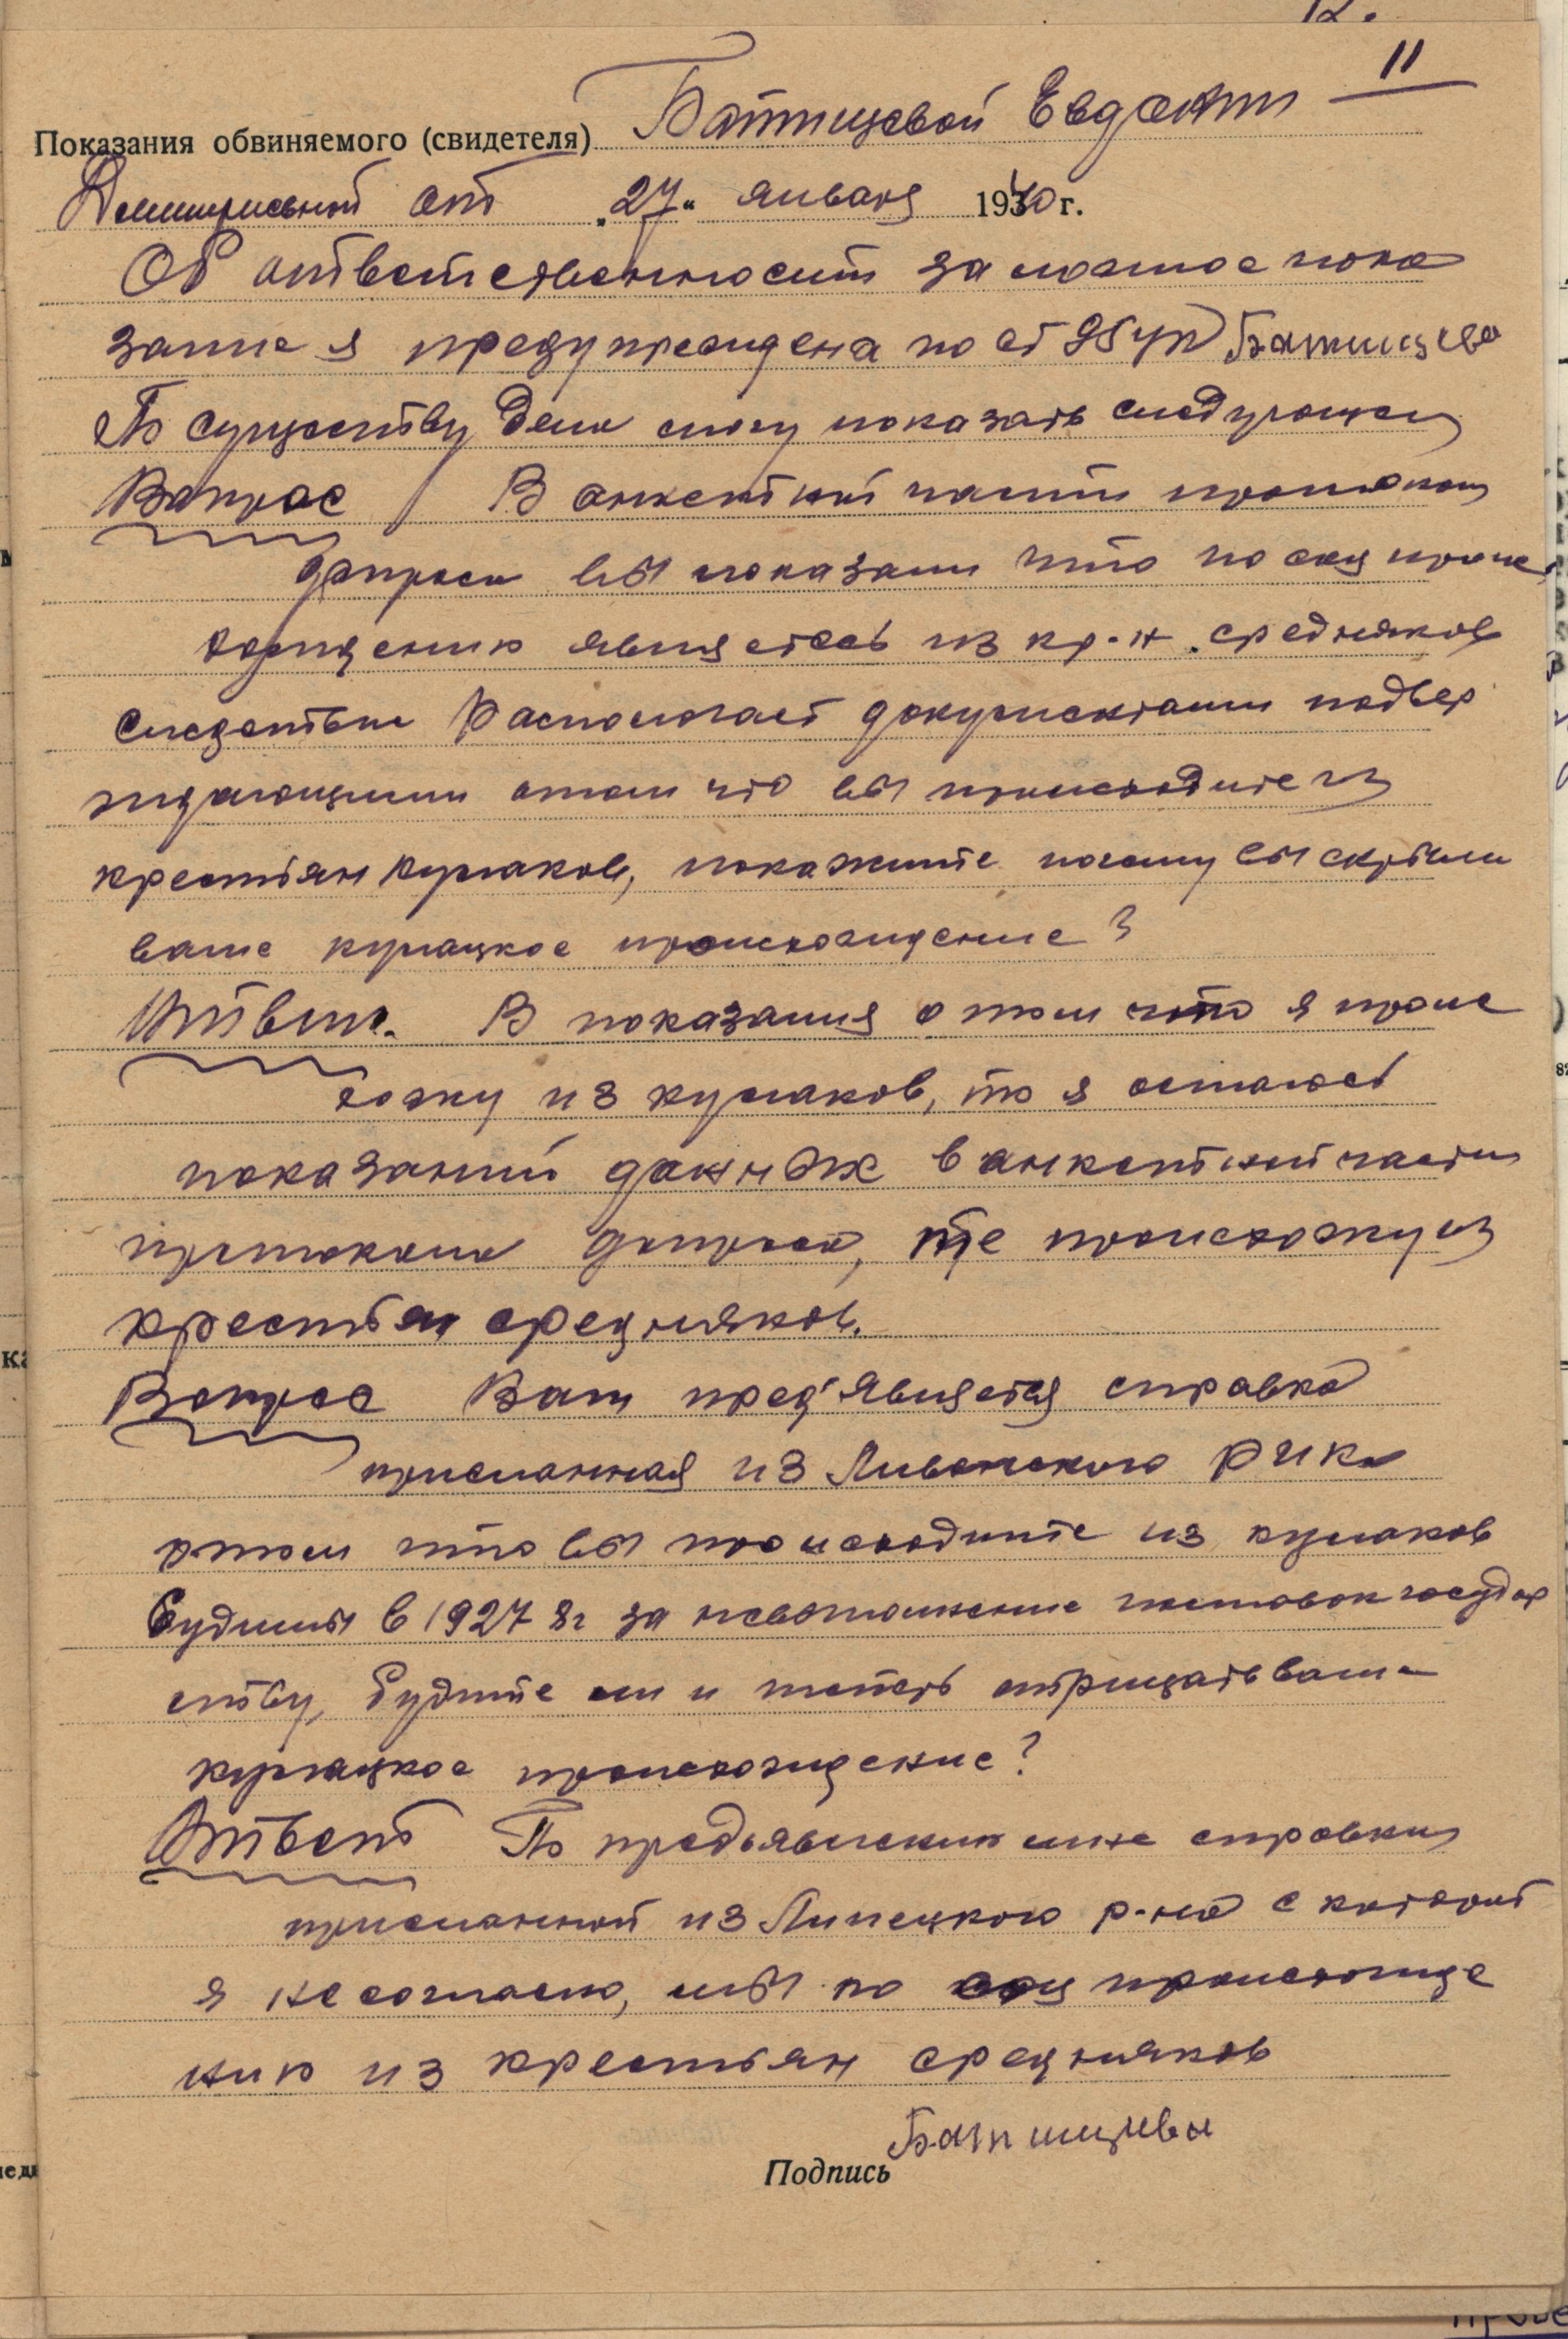 12.
11
Показания обвиняемого (свидетеля) Батищевой Евдокии
Дмитриевной от "27" января 1940 г.
Об ответственности за ложное пока
зание я предупреждена по ст 95 УК Батищева
По существу дела могу показать следующее
Вопрос В анкетной части протокола
допроса вы показали что по соц проис
хождению являетесь из кр-н середняков
следствие располагает документами подвер
ждающими отом что вы происходите из
крестьян кулаков, покажите почему вы скрыли
ваше кулацкое происхождение?
Ответ. В показания о том что я проис
хожу из кулаков, то я остаюсь
показаний данных в анкетной части
протокола допроса, те происхожу из
крестьян середняков.
Вопрос Вам пред'является справка
присланная из Ливенского РИКа
отом что вы происходите из кулаков
Судимы в 1927 8г за невыполнение поставок государ
ству, будите ли и теперь отрицать ваше
кулацкое происхождение?
Ответ По предъявлении мне справки
присланной из Липецкого р-на с которой
я не согласна, мы по соц происхожде
нию из крестьян середняков
Подпись Батищева